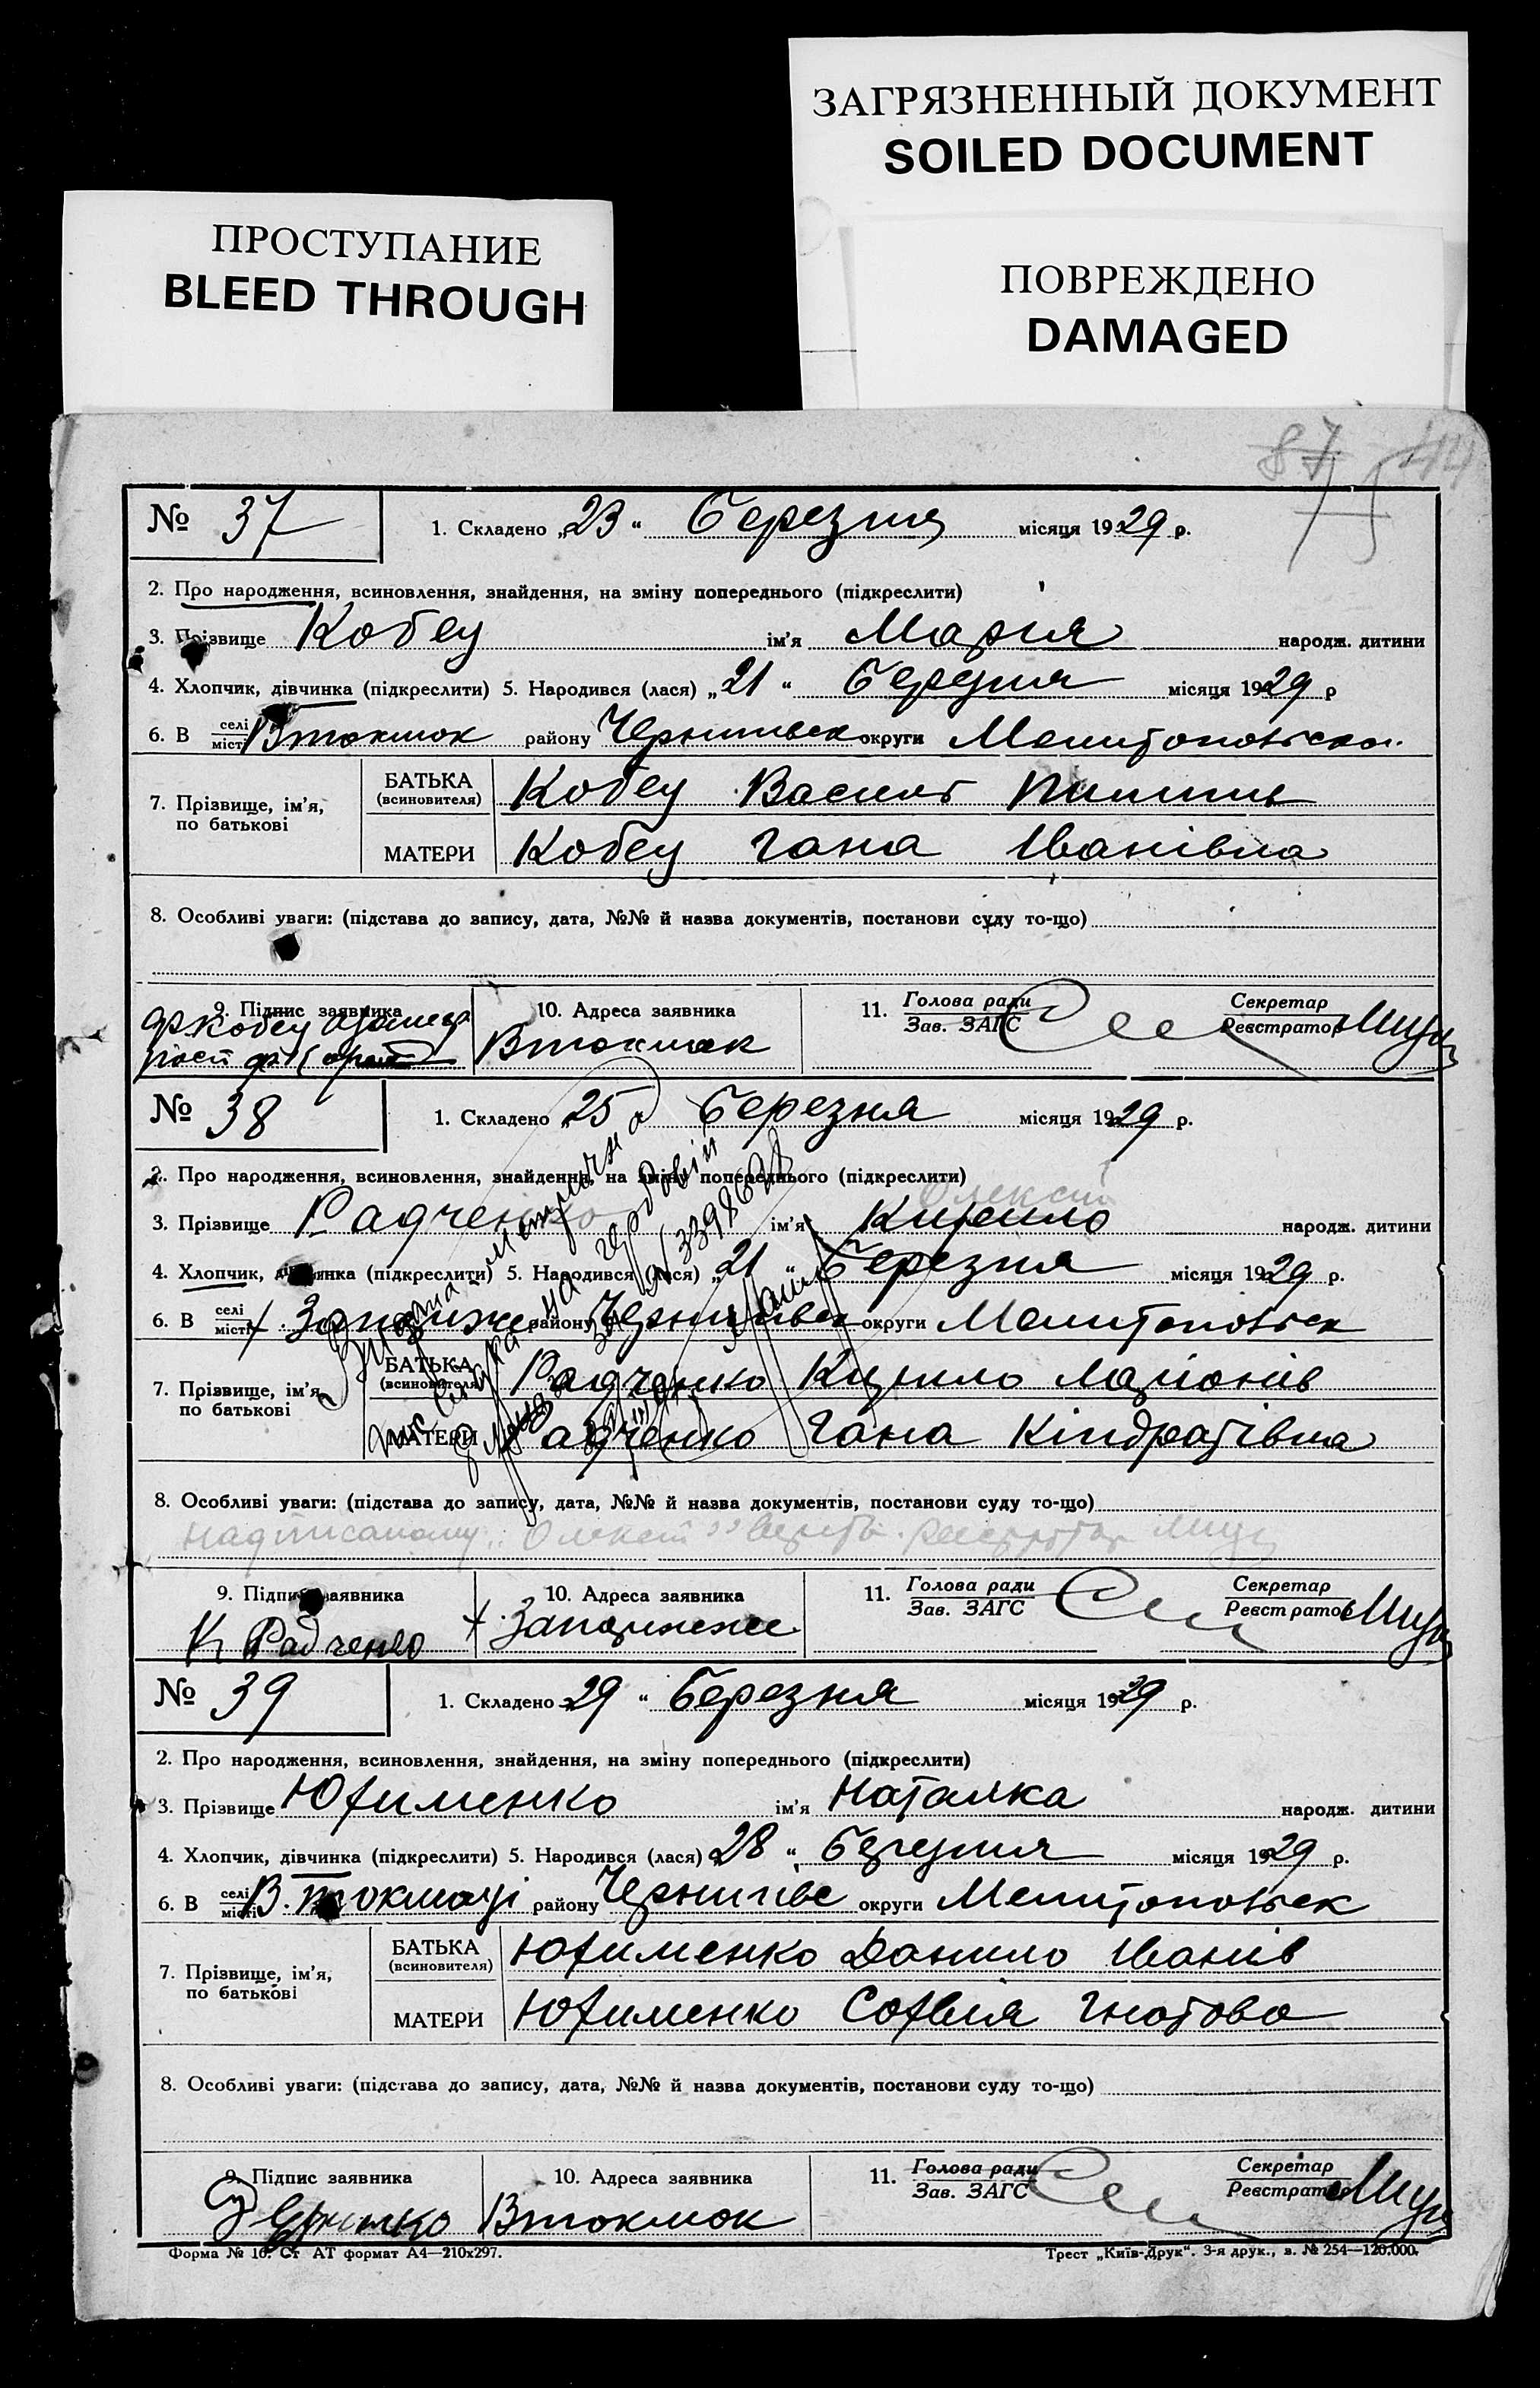 ЗАГРЯЗНЕННЫЙ ДОКУМЕНТ
SOILED DOCUMENT
ПРОСТУПАНИЕ
BLEED THROUGH
ПОВРЕЖДЕНО
DAMAGED
87 44
№ 37 1. Складено „23“ Березня місяця 1929 р.
2. Про народження, всиновлення, знайдення, на зміну попереднього (підкреслити)
3. Прізвище Кобец ім'я Марія народж. дитини
4. Хлопчик, дівчинка (підкреслити) 5. Народився (лася) „21“ Березня місяця 1929 р
6. В селі місті Втокмок району Чернигівск округи Мелитопольськ.
7. Прізвище, ім'я, по батькові
БАТЬКА (всиновителя) Кобец Василь
МАТЕРИ Кобец Гана Іванівна
8. Особливі уваги: (підстава до запису, дата, №№ й назва документів, постанови суду то-що)
9. Підпис заявника 10. Адреса заявника 11. Голова ради Зав. ЗАГС Секретар Реєстратор
Втокмак
№ 38 1. Складено „25 Березня місяця 1929 р.
2. Про народження, всиновлення, знайдення, на зміну попереднього (підкреслити)
Олексій
3. Прізвище Радченко ім'я Кирило народж. дитини
4. Хлопчик, дівчинка (підкреслити) 5. Народився (лася) „21“ Березня місяця 1929 р.
6. В селі місті району Чернигівск округи Мелитопольск
7. Прізвище, ім'я, по батькові
БАТЬКА (всиновителя) Радченко Кирило Ларіонів
МАТЕРИ Радченко Гана Кіндратівна
8. Особливі уваги: (підстава до запису, дата, №№ й назва документів, постанови суду то-що)
надписаному „Олексій“ вірить. Реєстратор
9. Підпис заявника 10. Адреса заявника 11. Голова ради Зав. ЗАГС Секретар Реєстратор
К Радченко
№ 39 1. Складено 29 “ Березня місяця 1929 р.
2. Про народження, всиновлення, знайдення, на зміну попереднього (підкреслити)
3. Прізвище Юфименко ім'я Наталка народж. дитини
4. Хлопчик, дівчинка (підкреслити) 5. Народився (лася) „28“ Березня місяця 1929 р.
6. В селі місті В.Токмаці району Чернигівс округи Мелитопольск
7. Прізвище, ім'я, по батькові
БАТЬКА (всиновителя) Юфименко Данило Іванів
МАТЕРИ Юфименко Софія Гнатова
8. Особливі уваги: (підстава до запису, дата, №№ й назва документів, постанови суду то-що)
9. Підпис заявника 10. Адреса заявника 11. Голова ради Зав. ЗАГС Секретар Реєстратор
Втокмок
Форма № 16. Ст АТ формат А4—210х297. Трест „Київ-Друк“. 3-я друк., з. № 254—120.000.